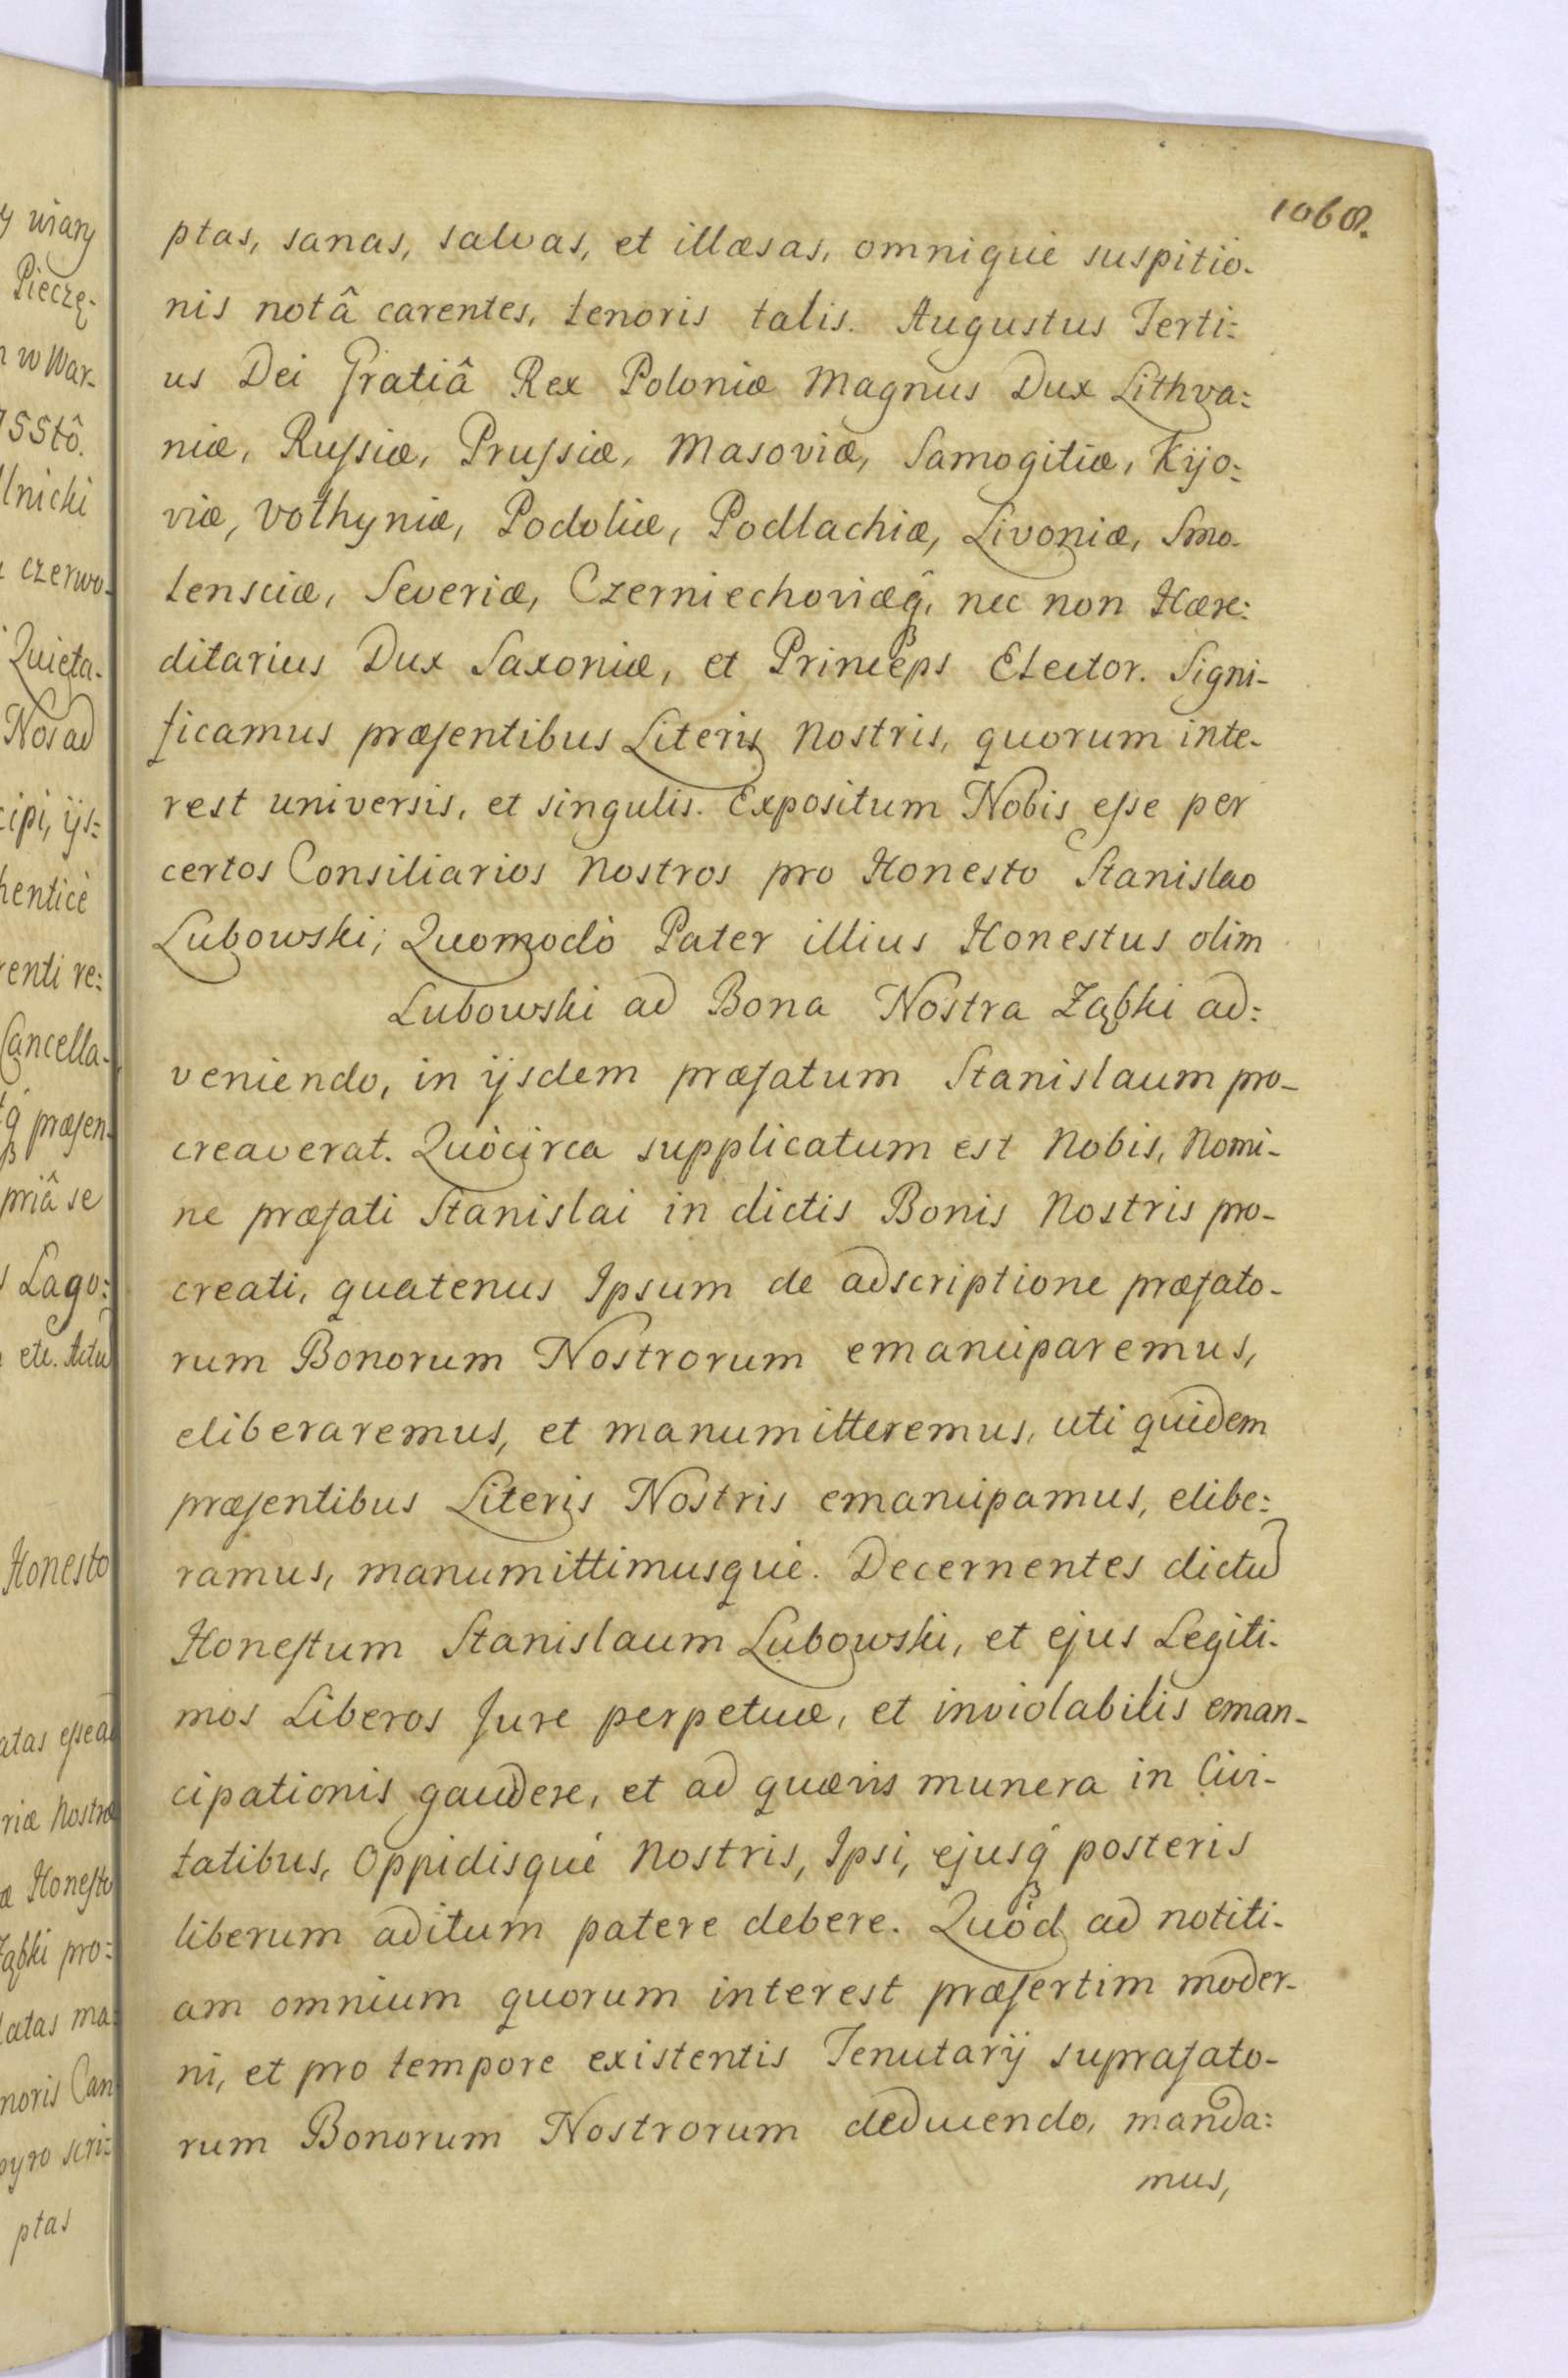 1068.
ptas, sanas, salvas, et illæsas, omnique suspitio-
nis notâ carentes, tenoris talis. Augustus Terti:
us Dei Gratiâ Rex Poloniæ Magnus Dux Lithva:
niæ, Russiæ, Prussiæ, Masoviæ, Samogitiæ, Kijo:
viæ, Volhyniæ, Podoliæ, Podlachiæ, Livoniæ, Smo-
lensciæ, Severiæ, Czerniechoviæq̃, nec non Hære:
ditarius Dux Saxoniæ, et Princeps Elector. Signi-
ficamus præsentibus Literis Nostris, quorum inte-
rest universis, et singulis. Expositum Nobis esse per
certos Consiliarios Nostros pro Honesto Stanislao
Lubowski; Quomodò Pater illius Honestus olim
Lubowski ad Bona Nostra Ząbki ad:
veniendo, in ijsdem præfatum Stanislaum pro-
creaverat. Quòcirca supplicatum est Nobis, Nomi-
ne præfati Stanislai in dictis Bonis Nostris pro-
creati, quatenus Ipsum de adscriptione præfato-
rum Bonorum Nostrorum emanciparemus,
eliberaremus, et manumitteremus, uti quidem
præsentibus Literis Nostris emancipamus, elibe:
ramus, manumittimusque. Decernentes dictu
Honestum Stanislaum Lubowski, et ejus Legiti-
mos Liberos Jure perpetuæ, et inviolabilis eman-
cipationis gaudere, et ad quævis munera in Civi-
tatibus, Oppidisquè Nostris, Ipsi, ejusq̃ posteris
liberum aditum patere debere. Quòd ad notiti-
am omnium quorum interest præsertim moder-
ni, et pro tempore existentis Tenutarij suprafato-
rum Bonorum Nostrorum deducendo, manda:
mus,